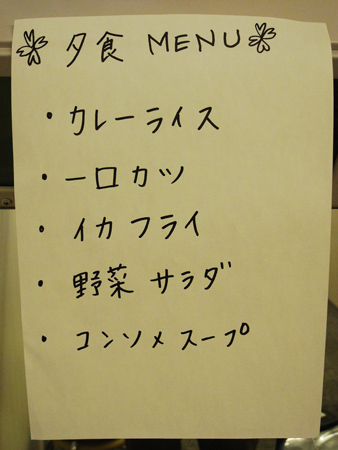 夕食 MENU
・カレーライス
・一口カツ
・イカフライ
・野菜サラダ
・コンソメスープ